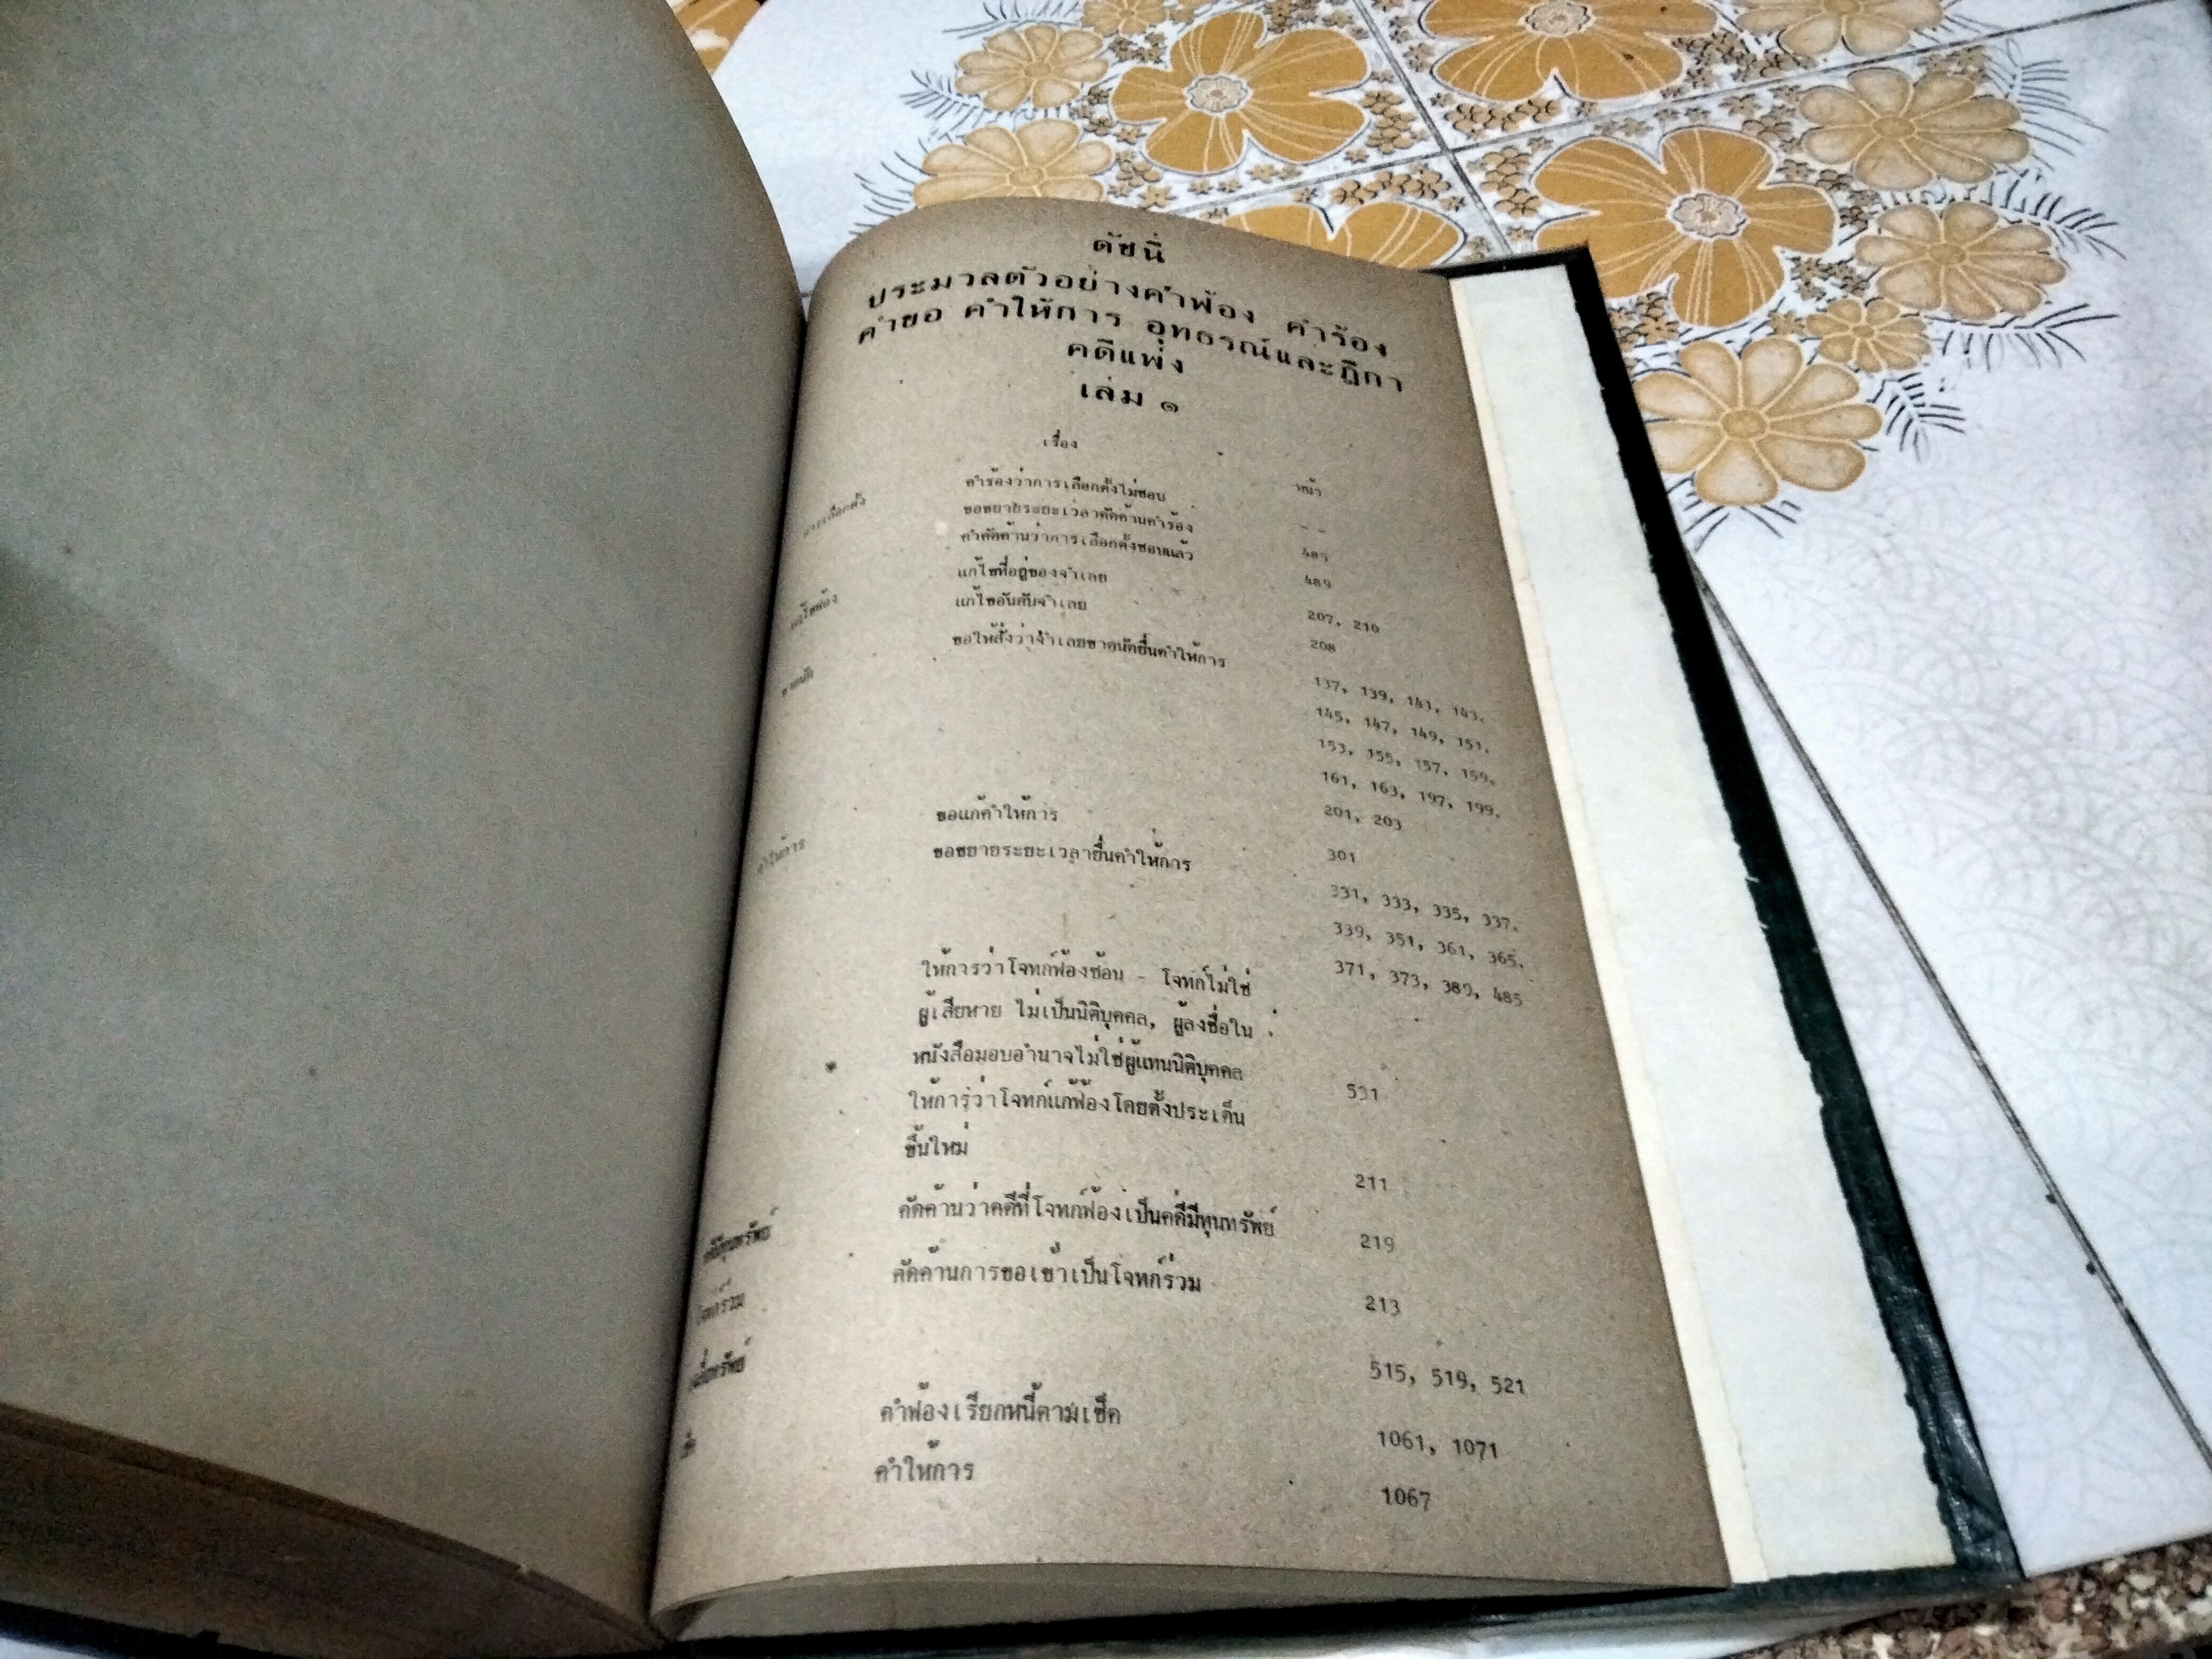 ดัชนี
ประมวลตัวอย่างคำฟ้อง คำร้อง
คำขอ คำให้การ อุทธรณ์และฎีกา
คดีแพ่ง
เล่ม ๑
เรื่อง
หน้า
คำร้องว่าการเลือกตั้งไม่ชอบ
การเลือกตั้ง
ขอขยายระยะเวลาคัดค้านคำร้อง 485
คำคัดค้านว่าการเลือกตั้งชอบแล้ว 489
แก้ไขฟ้อง แก้ไขที่อยู่ของจำเลย 207, 210
แก้ไขอันดับจำเลย 208
ขาดนัด ขอให้สั่งว่าจำเลยขาดนัดยื่นคำให้การ 137, 139, 141, 143,
145, 147, 149, 151,
153, 155, 157, 159,
161, 163, 197, 199,
201, 203
คำให้การ ขอแก้คำให้การ 301
ขอขยายระยะเวลายื่นคำให้การ 331, 333, 335, 337,
339, 351, 361, 365,
371, 373, 389, 485
ให้การว่าโจทก์ฟ้องซ้อน - โจทก์ไม่ใช่
ผู้เสียหาย ไม่เป็นนิติบุคคล, ผู้ลงชื่อใน
หนังสือมอบอำนาจไม่ใช่ผู้แทนนิติบุคคล 531
ให้การว่าโจทก์แก้ฟ้องโดยตั้งประเด็น
ขึ้นใหม่ 211
คดีมีทุนทรัพย์ คัดค้านว่าคดีที่โจทก์ฟ้องเป็นคดีมีทุนทรัพย์ 219
โจทก์ร่วม คัดค้านการขอเข้าเป็นโจทก์ร่วม 213
515, 519, 521
เช็ค คำฟ้องเรียกหนี้ตามเช็ค 1061, 1071
คำให้การ 1067